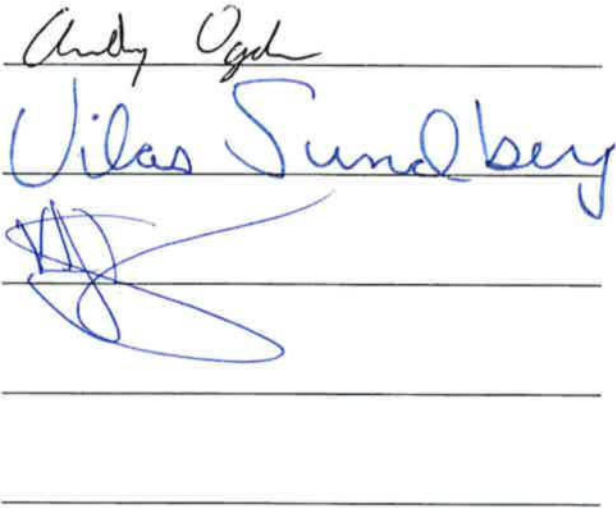 Andy Ogden
Vilas Sundberg